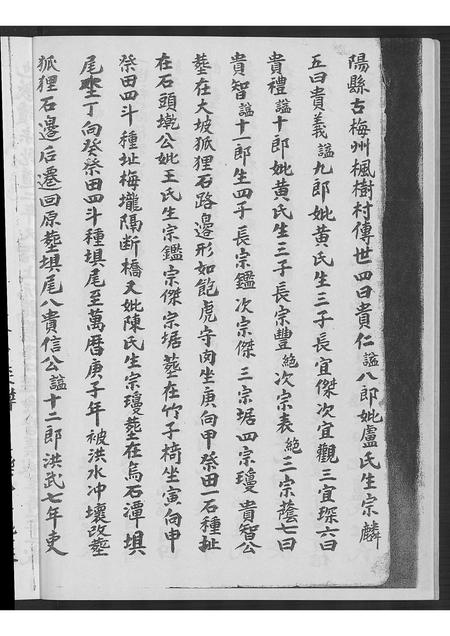 陽縣古梅州楓樹村傳世四曰貴仁諡八郎妣盧氏生宗麟
五曰貴義諡九郎妣黃氏生三子長宜傑次宜觀三宜琛六曰
貴禮諡十郎妣黃氏生三子長宗豐絕次宗表絕三宗蔭七曰
貴智諡十一郎生四子長宗鑑次宗傑三宗堀四宗瓊貴智公
塟在大坡狐狸石路邊形如飽虎守肉坐庚向甲祭田一石種址
在石頭墘公妣王氏生宗鑑宗傑宗堀塟在竹子椅坐寅向申
祭田四斗種址梅壠隔断橋又妣陳氏生宗瓊塟在烏石潭垻
尾坐丁向癸祭田四斗種垻尾至萬曆庚子年被洪水冲壞改塟
狐狸石邊后遷回原塟垻尾八貴信公諡十二郎洪武七年吏